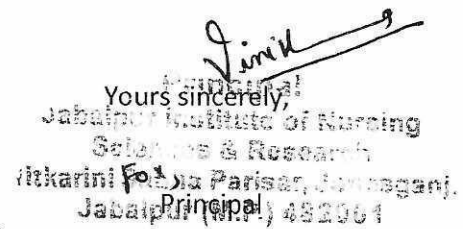 Vinit
Principal
Yours sincerely,
Jabalpur Institute of Nursing
Sciences & Research
Hitkarini Parisar, Jonesganj,
For,
Jabalpur (M.P.) 482001
Principal